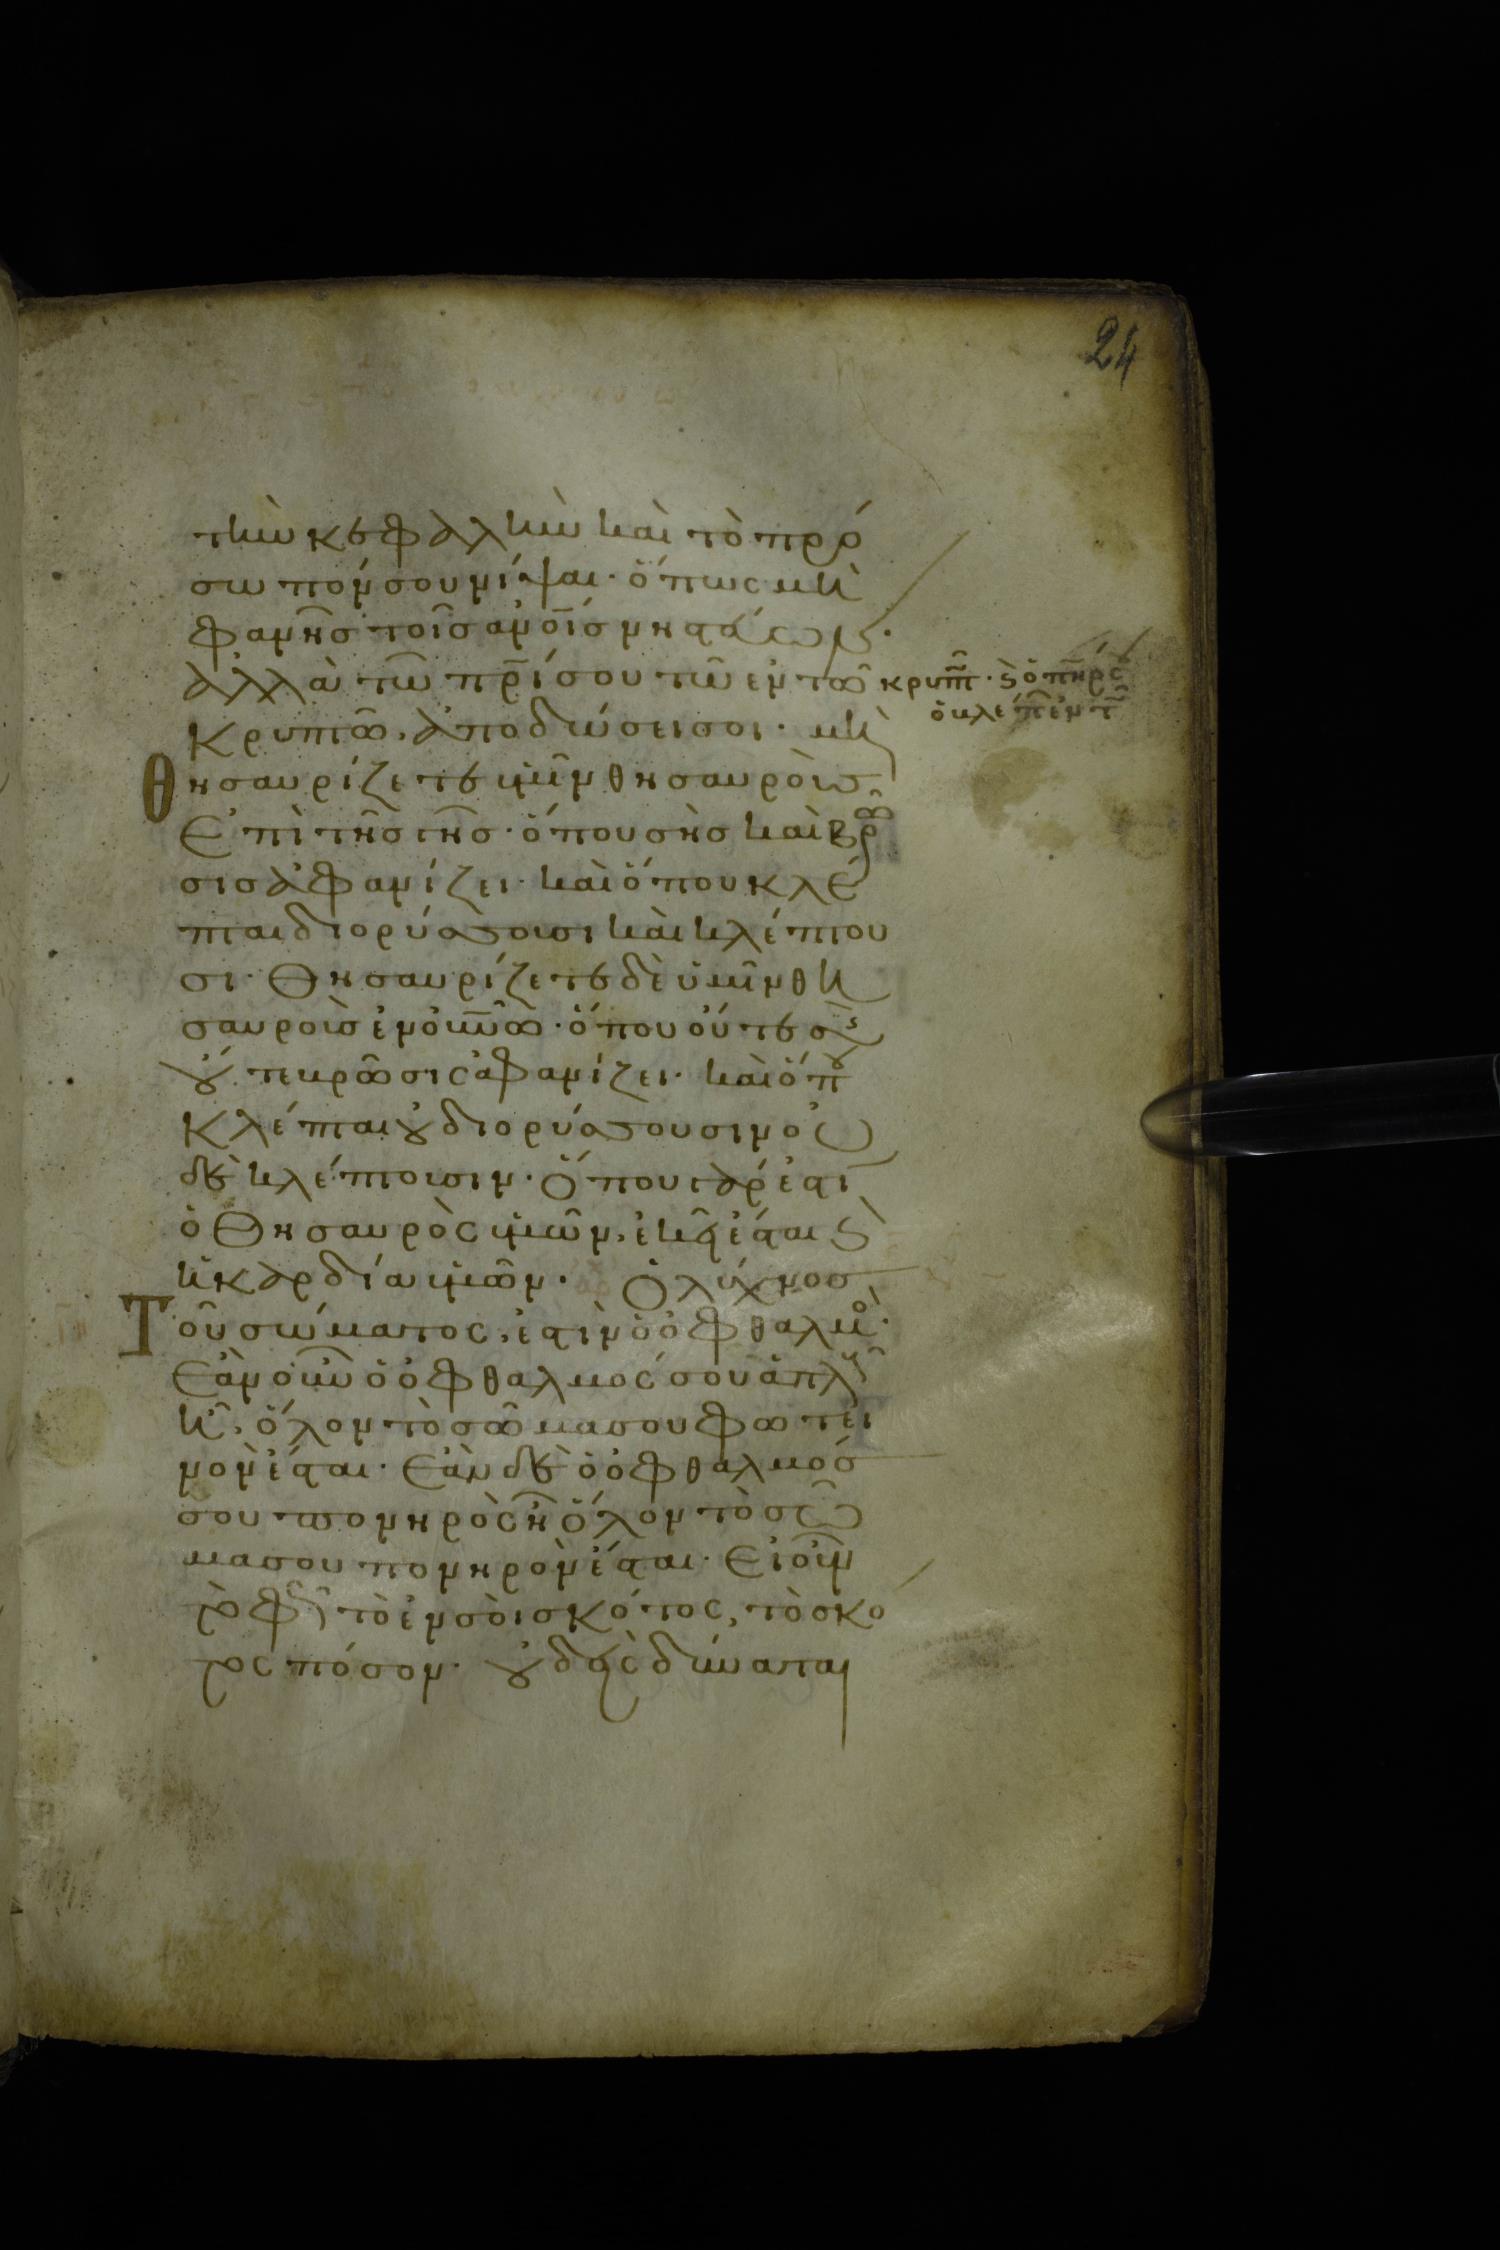 24
τὴν κεφαλὴν καὶ τὸ πρό
σωπόν σου νίψαι· ὅπως μὴ
φανῆς τοῖς ἀν̅οίς νηστεύων·
ἀλλὰ τῶ πρ̅ί σου τῶ ἐν τῶ
κρυπτ· ϗ ὁ πηρ σ
ὁ βλέπ ἐν τ
κρυπτῶ, ἀποδώσει σοι· μὴ
θησαυρίζετε ὑμῖν θησαυροὺς
ἐπὶ τῆς γῆς· ὅπου σὴς καὶ βρῶ
σις ἀφανίζει· καὶ ὅπου κλέ
πται διορύσσουσι καὶ κλέπτου
σι· Θησαυρίζετε δὲ ὑμῖν θη
σαυροὺς ἐν οὐν̅ῶ· ὅπου οὔτε σὴς
οὔτε βρῶσις ἀφανίζει· καὶ ὅπου
κλέπται οὐ διορύσσουσιν οὐ
δὲ κλέπτουσιν· Ὅπου γάρ ἐστι
ὁ Θησαυρὸς ὑμῶν, ἐκεῖ ἔσται ϗ
ἡ καρδία ὑμῶν· Ὁ λύχνος
Τοῦ σώματος, ἐστὶν ὁ ὀφθαλμὸ·
Ἐὰν οὖν ὁ ὀφθαλμός σου ἁπλοῦς
ἦ, ὅλον τὸ σῶμα σου φωτει
νὸν ἔσται· Ἐὰν δὲ ὁ ὀφθαλμός
σου πονηρὸς ἦ ὅλον τὸ σῶ
μα σου πονηρὸν ἔσται· Εἰ οὖν
τὸ φῶς τὸ ἐν σοὶ σκότος, τὸ σκό
τος πόσον· οὐδεὶς δύναται